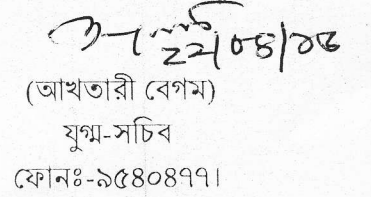 ২২/০৪/১৮
(আখতারী বেগম)
যুগ্ম-সচিব
ফোনঃ-৯৫৪০৪৭৭।